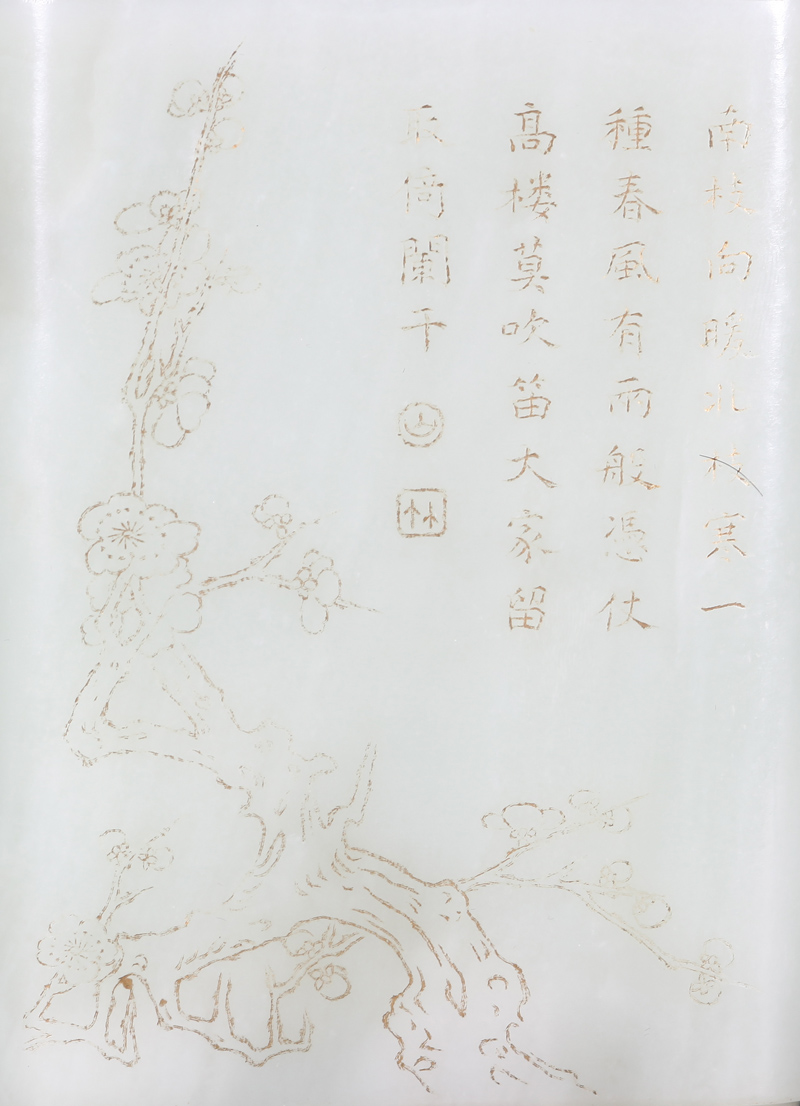 南枝向暖北枝寒一
種春風有兩般憑仗
髙楼莫吹笛大家留
取倚闌干
山
林